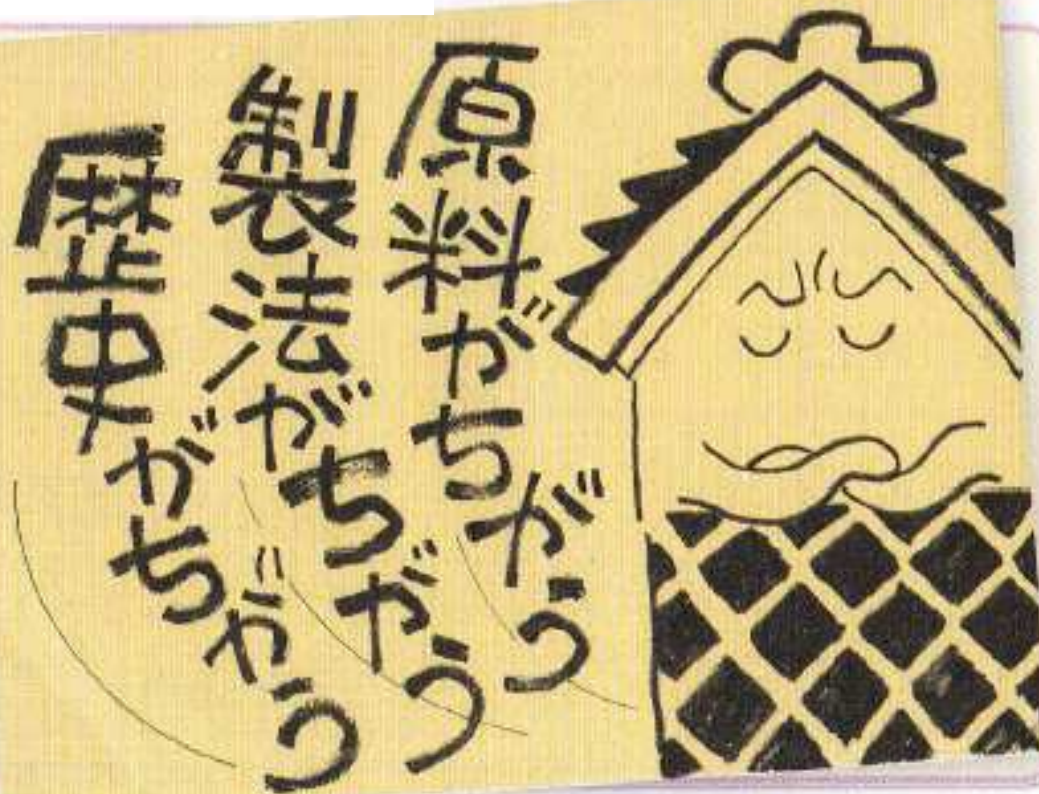 原料がちがう
製法がちがう
歴史がちがう